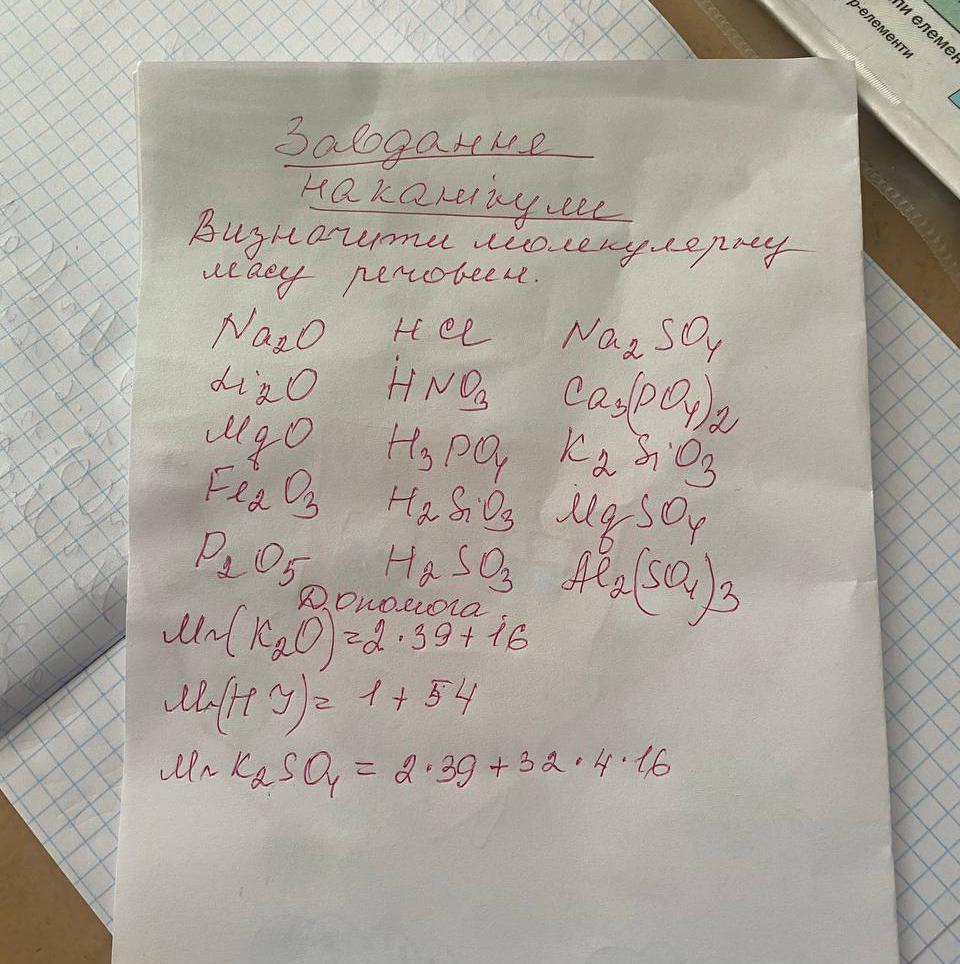 пи елемен
p-елементи
Завдання
на канікули
Визначити молекулярну
масу речовин.
Na₂O HCl Na₂SO₄
Li₂O HNO₃ Ca₃(PO₄)₂
MgO H₃PO₄ K₂SiO₃
Fe₂O₃ H₂SiO₃ MgSO₄
P₂O₅ H₂SO₃ Al₂(SO₄)₃
Допомога.
Mr(K₂O)=2·39+16
Mr(HJ)= 1+54
Mr K₂SO₄ = 2·39+32·4·16